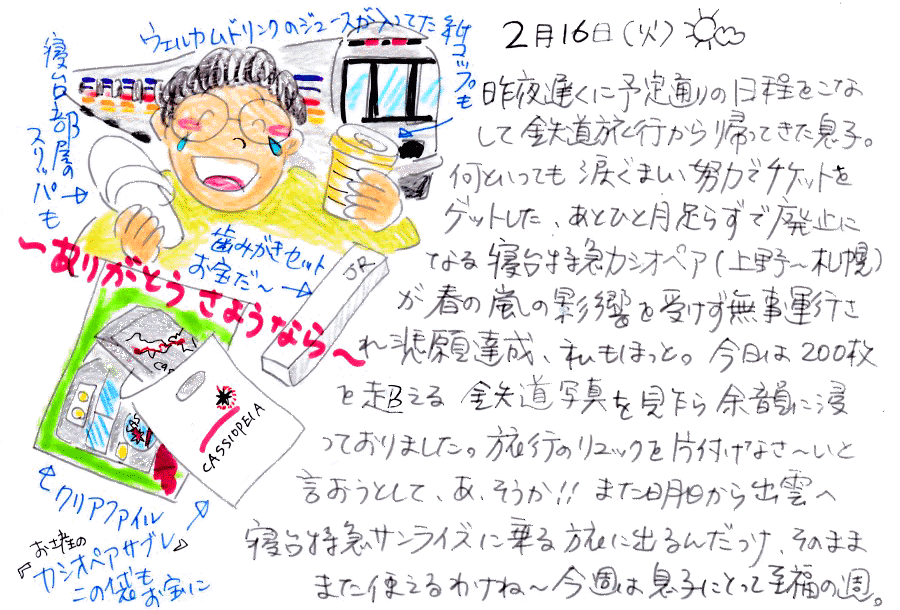 ウェルカムドリンクのジュースが入ってた紙コップも
寝台部屋の
スリッパも
歯みがきセット
お宝だ〜
JR
〜ありがとう さようなら〜
CASSIOPEIA
クリアファイル
お土産の
『カシオペアサブレ』
この袋も
お宝に
2月16日(火)
昨夜遅くに予定通りの日程をこな
して鉄道旅行から帰ってきた息子。
何といっても涙ぐましい努力でチケットを
ゲットした、あとひと月足らずで廃止に
なる寝台特急カシオペア(上野〜札幌)
が春の嵐の影響を受けず無事運行さ
れ悲願達成、私もほっと。今日は200枚
を超える鉄道写真を見ながら余韻に浸
っておりました。旅行のリュックを片付けなさ〜いと
言おうとして、あ、そうか!! また明日から出雲へ
寝台特急サンライズに乗る旅に出るんだっけ、そのまま
また使えるわけね〜今週は息子にとって至福の週。